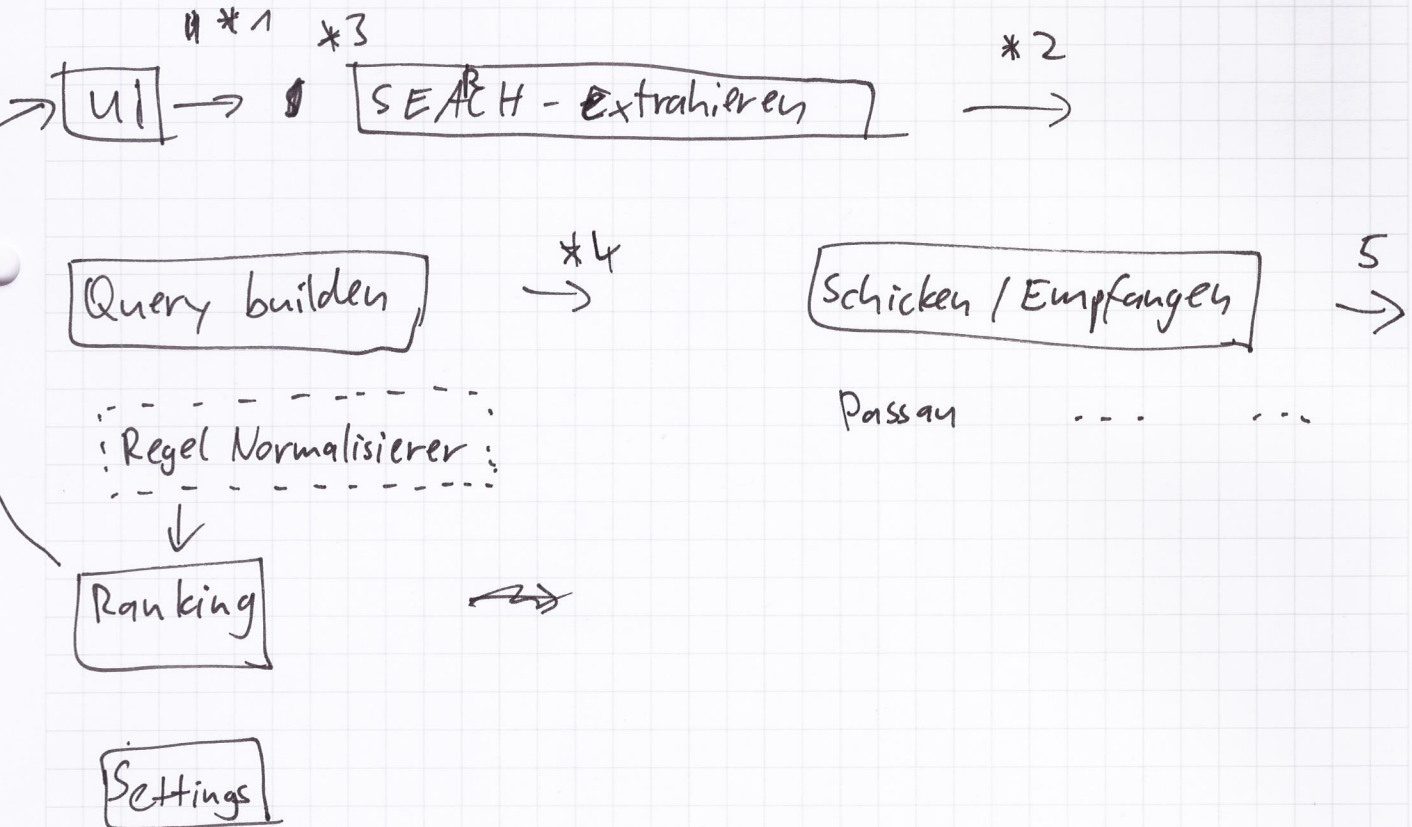 *1 *3 *2
UI → SEARCH - Extrahieren →
Query builden → *4 Schicken / Empfangen → 5
Passau ... ...
Regel Normalisierer
↓
Ranking
Settings